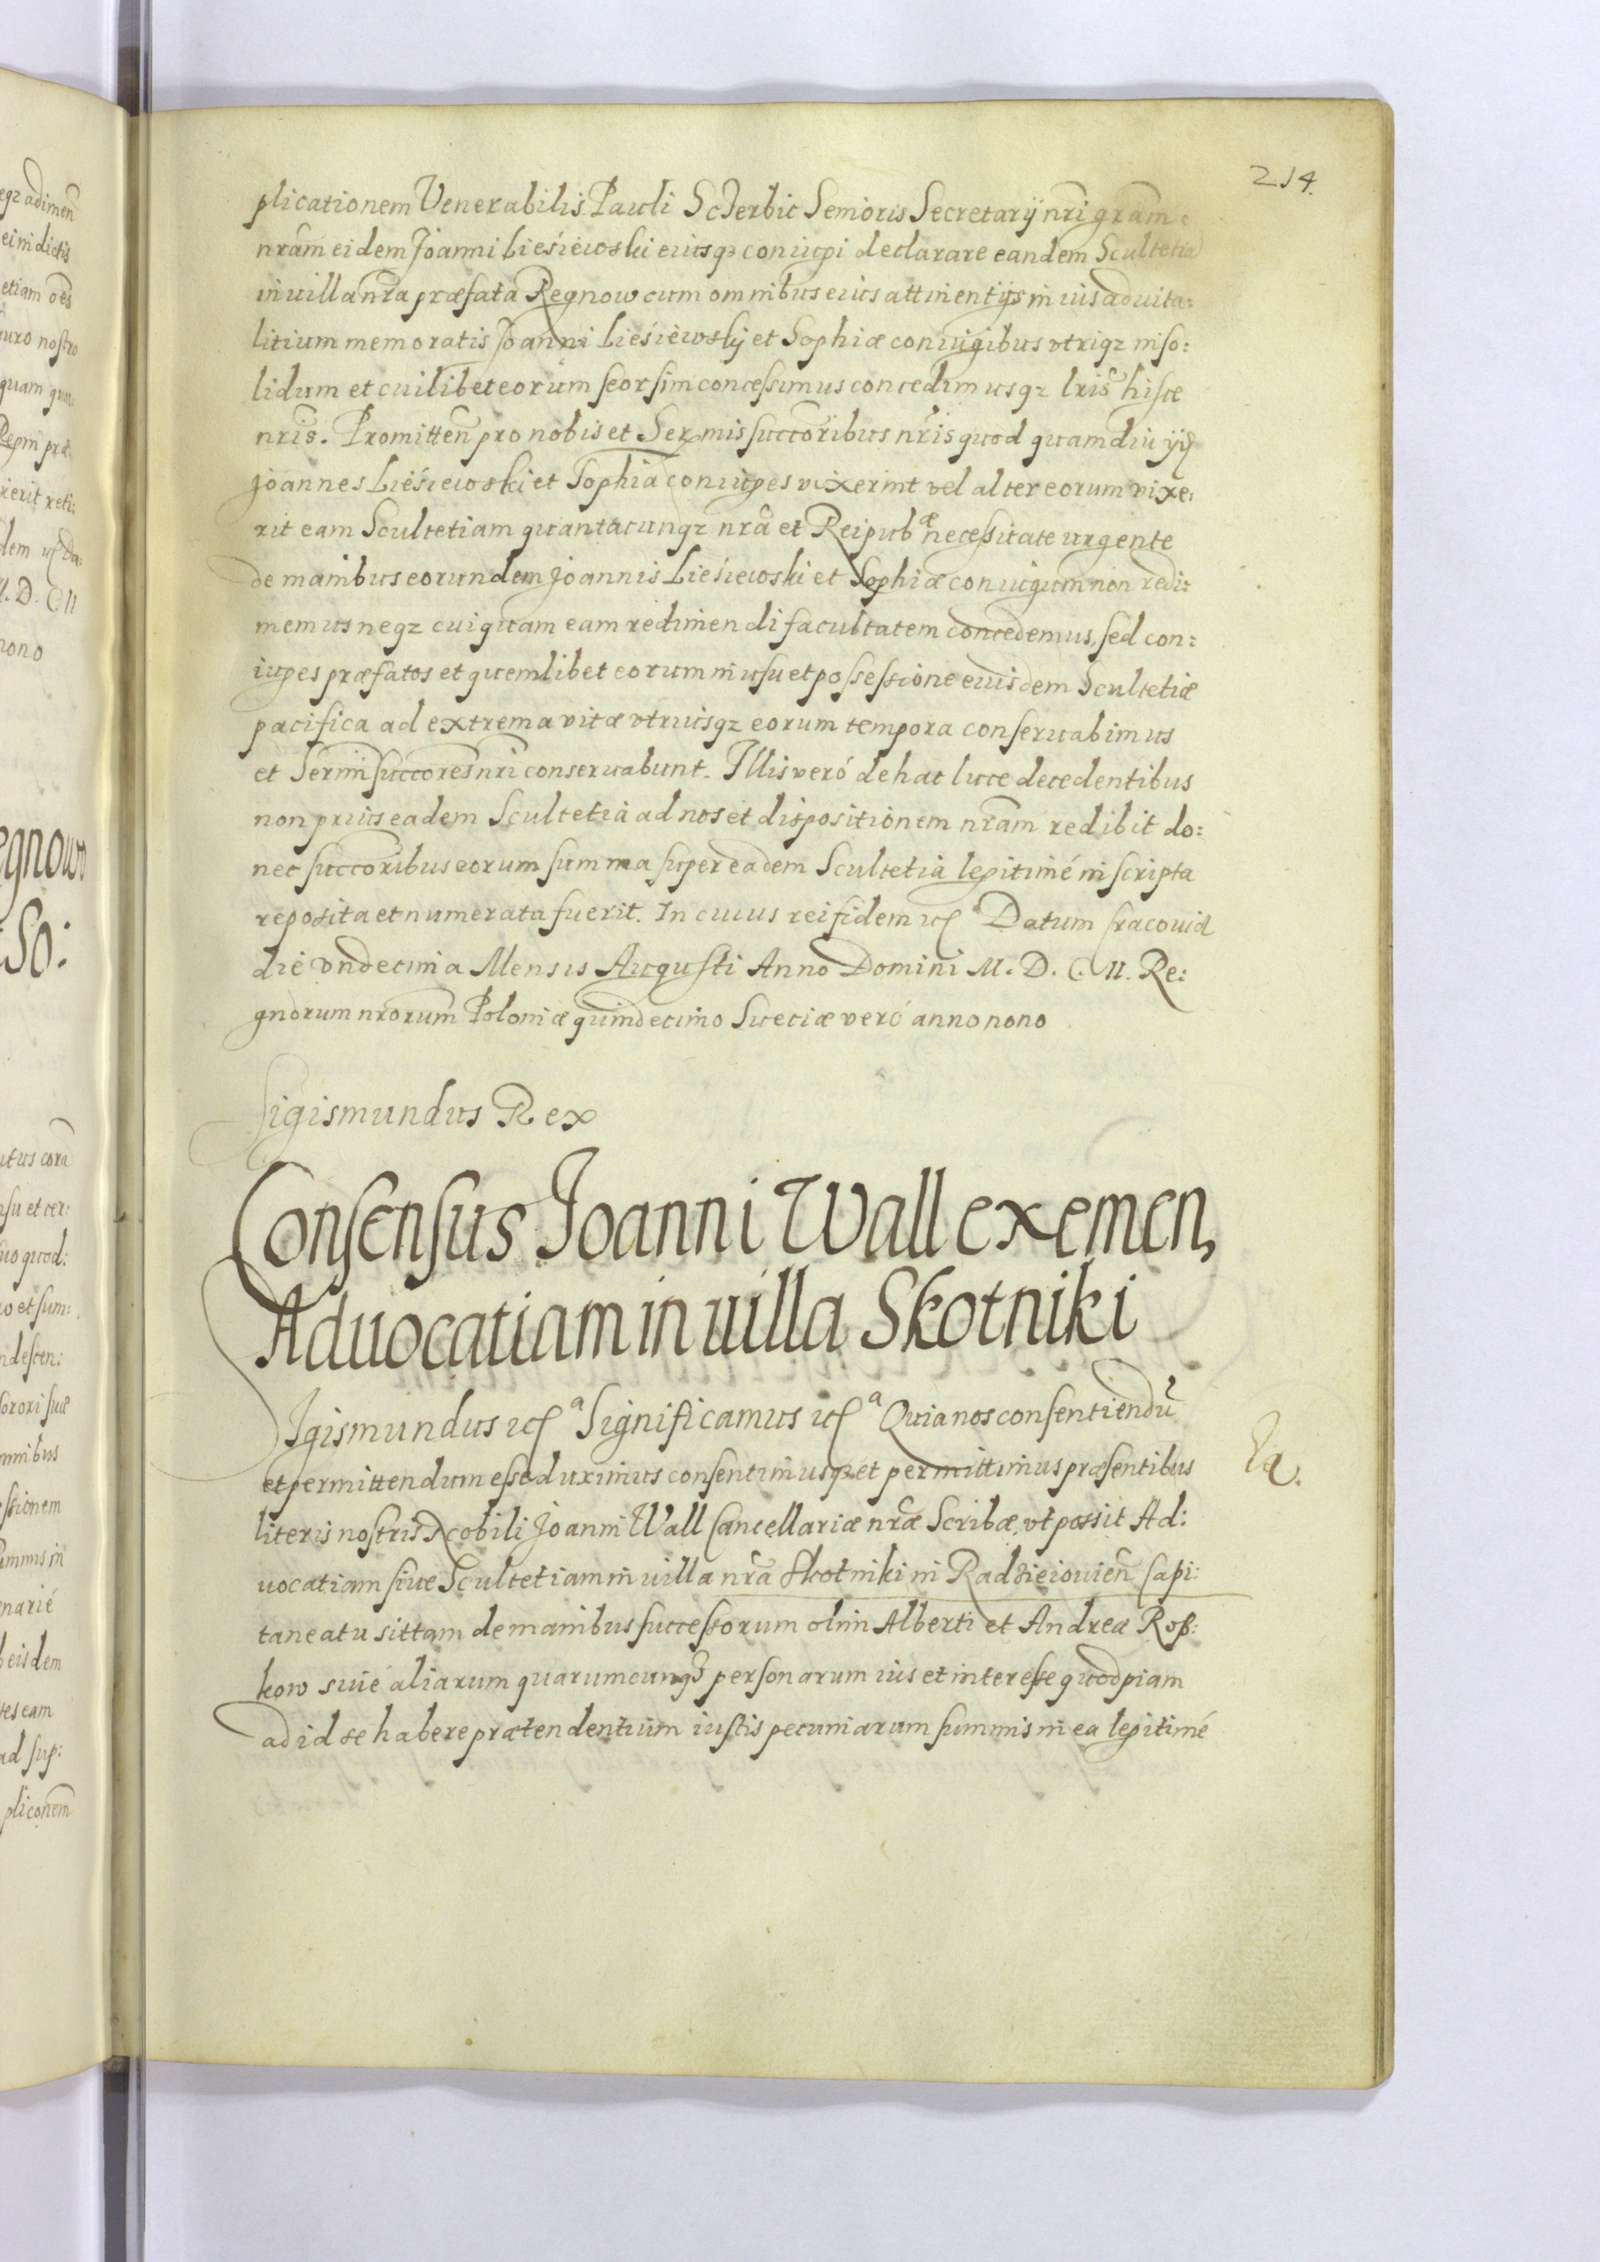 214.
plicationem Venerabilis Pauli Sczerbic Semioris Secretarij nrĩ grãm
nrãm eidem Joanni Lieśiewoski eiusqz coniugi declarare eandem Scultetiã
in villa nrã præfata Regnow cum omnibus eius attinentijs in ius aduita:
litium memoratis Joanni Lieśiewoskij et Sophiæ coniugibus vtriqz in so:
lidum et cuilibet eorum seorsim concessimus concedimusqz lrĩs hisce
nrĩs. Promitten̄ pro nobis et Sermis succoribus nrĩs quod quamdiu ij
Joannes Lieśiewoski et Sophia coniuges vixerint vel alter eorum vixe:
rit eam Scultetiam quantacunqz nrã et Reipubæ necessitate urgente
de manibus eorundem Joannis Lieśiewoski et Sophiæ coniugum non redi:
memus neqz cuiquam eam redimendi facultatem concedemus, sed con:
iuges præfatos et quemlibet eorum in usu et possessione eiusdem Scultetiæ
pacifica ad extrema vitæ vtriusqz eorum tempora conseruabimus
et Sermi succores nrĩ conseruabunt. Illis veró de hac luce decedentibus
non prius eadem Scultetia ad nos et dispositionem nrãm redibit do:
nec succoribus eorum summa super eadem Scultetia legitimé inscripta
reposita et numerata fuerit. In cuius rei fidem etc̃ Datum Cracouiæ
die vndecima Mensis Augusti Anno Domini M. D. C. II. Re:
gnorum nrõrum Poloniæ quindecimo Sueciæ veró anno nono
Sigismundus Rex
Consensus Joanni Wall exemen,
Aduocatiam in uilla Skotniki
Sigismundus etc̃a Significamus etc̃a Quia nos consentiendũ
et permittendum esse duximus consentimusqz et permittimus præsentibus
literis nostris Nobili Joanni Wall Cancellariæ nrãe Scribæ, vt possit Ad:
uocatiam siue Scultetiam in villa nrã Skotniki in Radzieiouien̄ Capi:
taneatu sittam de manibus successorum olim Alberti et Andreæ Roß:
kow siué aliarum quarumcunqz personarum ius et interesse quodpiam
ad id se habere prætendentium iustis pecuniarum summis in ea legitimé